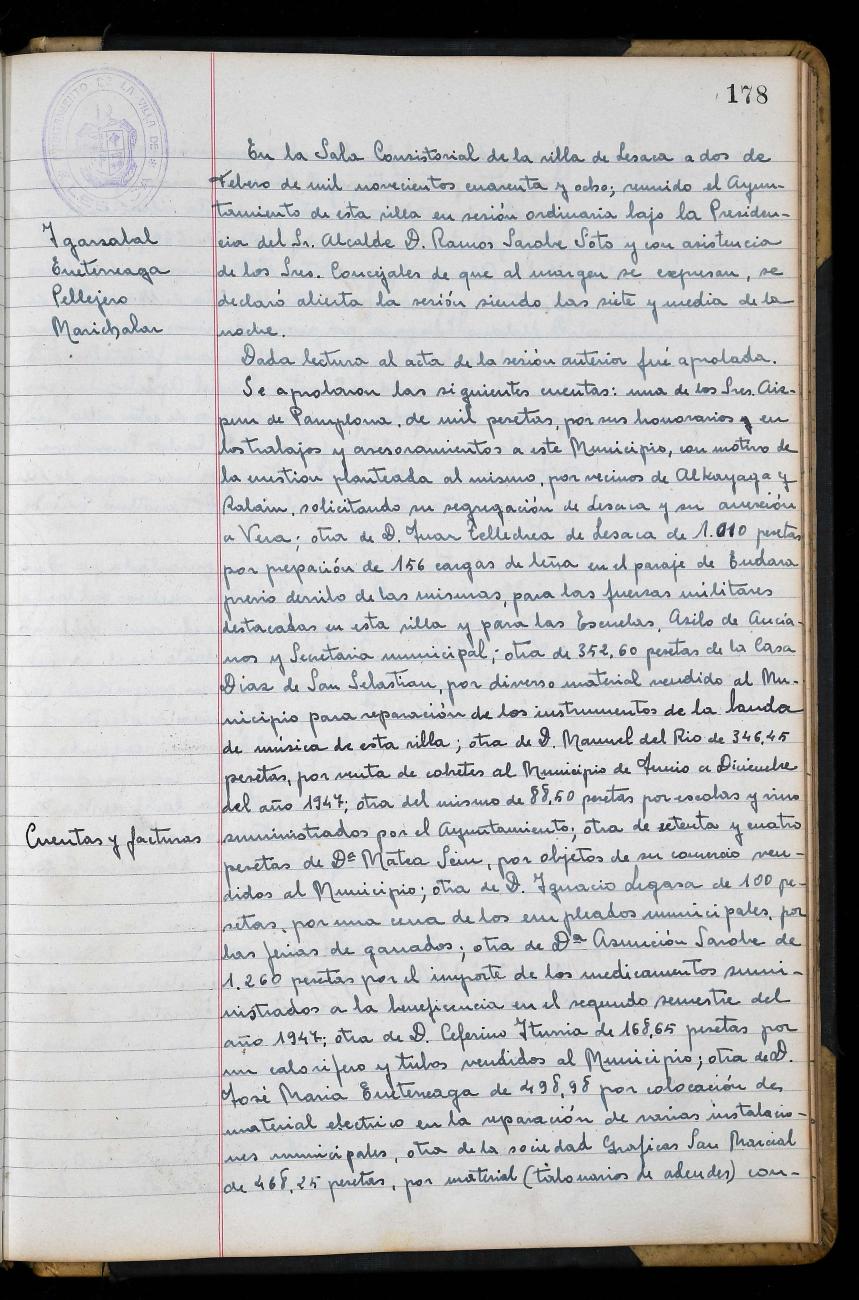 178
AYUNTAMIENTO DE LA VILLA DE
En la Sala Consistorial de la villa de Lesaca a dos de
Febero de mil novecientos cuarenta y ocho; reunido el Ayun-
tamiento de esta villa en sesión ordinaria bajo la Presiden-
cia del Sr. Alcalde D. Ramos Sarobe Soto y con asistencia
de los Sres. Concejales de que al margen se expresan, se
declaró abierta la sesión siendo las siete y media de la
noche.
Igarzabal
Erreterreaga
Pellejero
Marichalar
Dada lectura al acta de la sesión anterior fué aprobada.
Se aprobaron las siguientes cuentas: una de los Sres. Aiz-
pun de Pamplona, de mil pesetas, por sus honorarios, en
los trabajos y asesoramientos a este Municipio, con motivo de
la cuestion planteada al mismo, por vecinos de Alkayaga y
solicitando su segregación de Lesaca y su anexión
a Vera; otra de D. Juan Telledrea de Lesaca de 1.010 pesetas
por prepación de 156 cargas de leña en el paraje de Endara
previo derribo de las mismas, para las fuerzas militares
destacadas en esta villa y para las Escuelas, Asilo de Ancia-
nos y Secretaria municipal; otra de 352,60 pesetas de la Casa
Diaz de San Sebastian, por diverso material vendido al Mu-
nicipio para reparación de los instrumentos de la banda
de música de esta villa; otra de D. Manuel del Rio de 346,45
pesetas, por venta de cohetes al Municipio de Junio a Diciembre
del año 1947; otra del mismo de 88,50 pesetas por escobas y vino
suministrados por el Ayuntamiento; otra de setenta y cuatro
Cuentas y facturas
pesetas de Dª Matea Sein, por objetos de su comercio ven-
didos al Municipio; otra de D. Ignacio Legasa de 100 pe-
setas, por una cena de los empleados municipales, por
las ferias de ganados; otra de Dª Asunción Sarobe de
1.260 pesetas por el importe de los medicamentos sumi-
nistrados a la beneficencia en el segundo semestre del
año 1947; otra de D. Ceferino Iturria de 168,65 pesetas por
un calorifero y tubos vendidos al Municipio; otra de D.
José Maria Erreterreaga de 498,98 por colocación de
material electrico en la reparación de varias instalacio-
nes municipales, otra de la sociedad Graficas San Marcial
de 468,25 pesetas, por material (talonarios de adeudes) con-